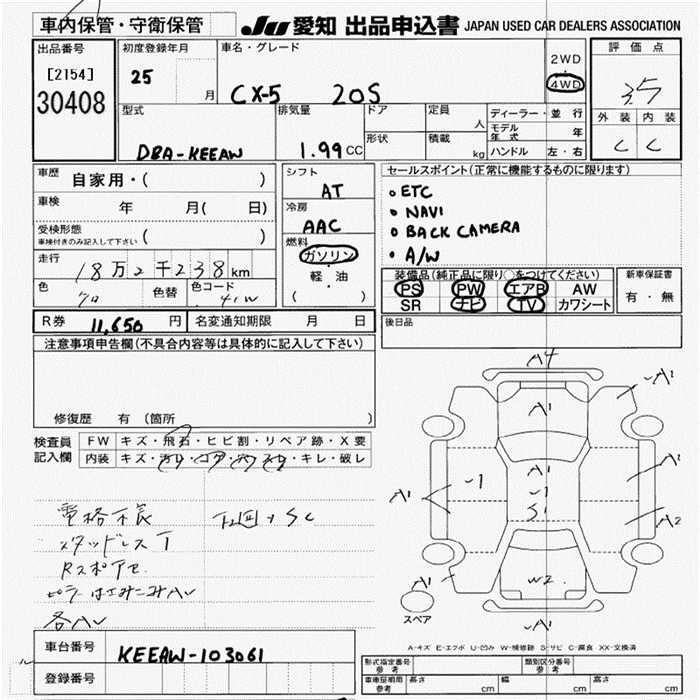 車内保管・守衛保管
JU 愛知 出品申込書 JAPAN USED CAR DEALERS ASSOCIATION
出品番号
[2154]
30408
初度登録年月
25
月
車名・グレード
CX-5 20S
2WD
4WD
評価点
3.5
外装 内装
C C
型式
DBA-KEEAW
排気量
1.99 CC
ドア
形状
定員
人
積載
kg
ディーラー・並行
モデル年式 年
ハンドル 左・右
車歴 自家用・( )
車検 年 月( 日)
受検形態
車検付きのみ記入して下さい ( )
走行 18万2千238km
色 クロ 色替 色コード 41W
シフト
AT
冷房
AAC
燃料
ガソリン
軽・油
( )
セールスポイント(正常に機能するものに限ります)
• ETC
• NAVI
• BACK CAMERA
• A/W
装備品(純正品に限り○をつけてください)
PS PW エアB AW
SR ナビ TV カワシート
新車保証書
有・無
R券 11,650 円 名変通知期限 月 日
後日品
注意事項申告欄(不具合内容等は具体的に記入して下さい)
修復歴 有 (箇所 )
検査員
記入欄
FW キズ・飛石・ヒビ割・リペア跡・X要
内装 キズ・汚れ・コゲ・穴・スレ・キレ・破レ
電格不良
下回りSC
スタッドレスT
各AW
A4
A1
A1
A1
-1
S1
A1
-1
A1
A2
W2
A1
A1
スペア
A-キズ E-エクボ U-凹み W-補修跡 S-サビ C-腐食 XX-交換済
車台番号 KEEAW-103061
登録番号
形式指定番号 参考
類別区分番号 参考
車庫証明用 参考 長さ cm 幅 cm 高さ cm